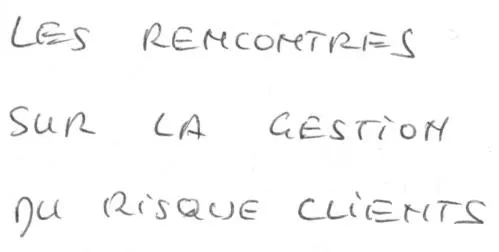 LES RENCONTRES
SUR LA GESTION
DU RISQUE CLIENTS